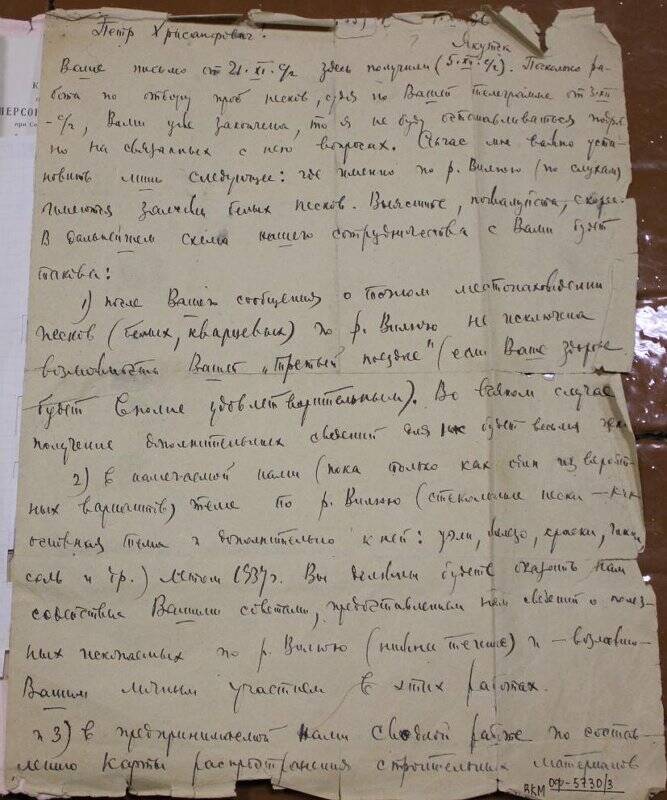 Петр Хрисанфович.
Якутск
Ваше письмо от 21.XI.с/г здесь получили (5.XII.с/г). Поскольку ра-
бота по отбору проб песков, судя по Вашей телеграмме от 3.XII
-с/г, Вами уже закончена, то я не буду останавливаться подроб
но на связанных с нею вопросах. Сейчас мне важно уста-
новить лишь следующее: где именно по р. Вилюю (по слухам)
имеются залежи белых песков. Выясните, пожалуйста, скорее.
В дальнейшем схема нашего сотрудничества с Вами будет
такова:
1) после Вашего сообщения о точном местонахождении
песков (белых, кварцевых) по р. Вилюю не исключена
возможность Вашей „третьей поездки" (если Ваше здоровье
будет вполне удовлетворительным). Во всяком случае
получение дополнительных сведений для нас будет весьма
2) в намечаемой нами (пока только как один из вероят-
ных вариантов) теме по р. Вилюю (стекольные пески – как
основная тема и дополнительно к ней: угли, железо, краски,
соль и др.) летом 1937г. Вы должны будете оказать нам
содействие Вашими советами, предоставлением нам сведений о полез-
ных ископаемых по р. Вилюю (нижнее течение) и – возможно –
Вашим личным участием в этих работах.
и 3) в предпринимаемой нами сводной работе по состав-
лению карты распространения строительных материалов
ВКМ ОФ-5730/3